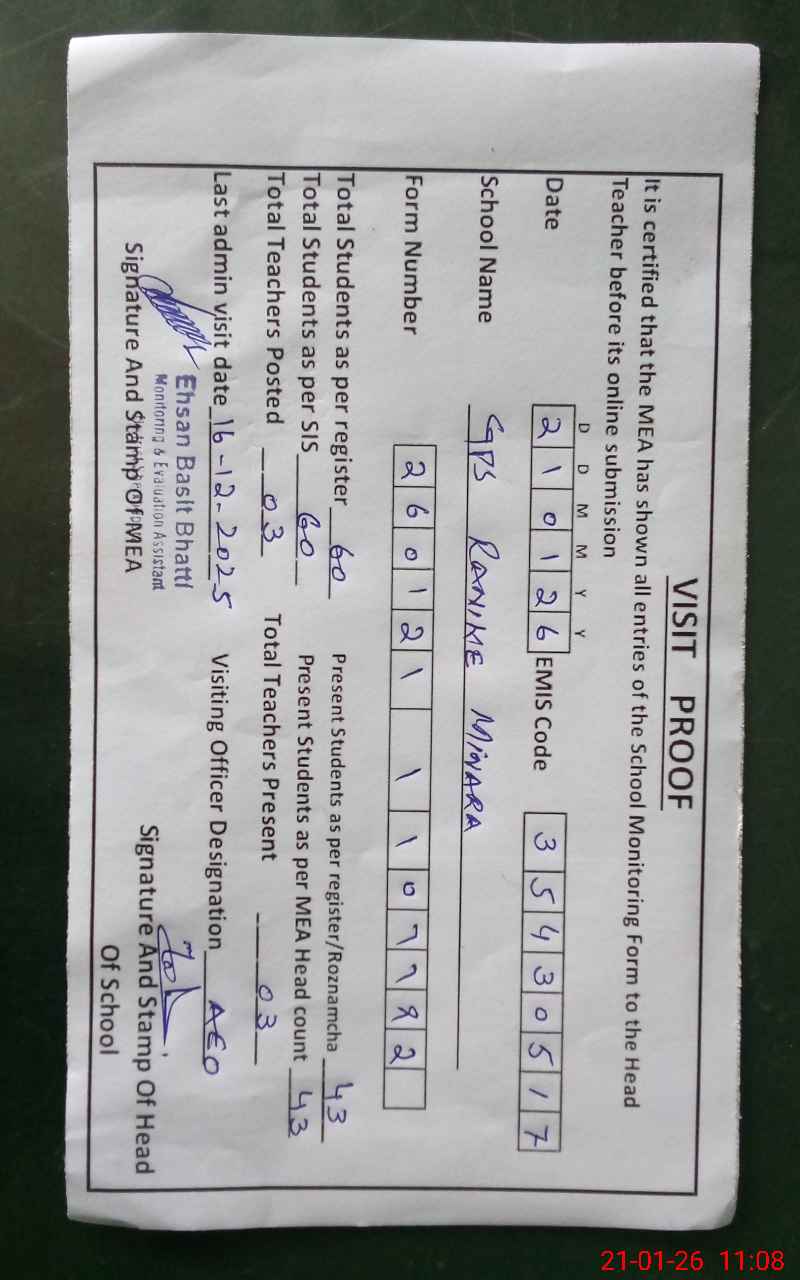 VISIT PROOF
It is certified that the MEA has shown all entries of the School Monitoring Form to the Head
Teacher before its online submission
D D M M Y Y
Date 2 1 0 1 2 6 EMIS Code 3 5 4 3 0 5 1 7
School Name GPS RANIKE MINARA
Form Number 2 6 0 1 2 1 1 1 0 7 7 8 2
Total Students as per register 60 Present Students as per register/Roznamcha 43
Total Students as per SIS 60 Present Students as per MEA Head count 43
Total Teachers Posted 03 Total Teachers Present 03
Last admin visit date 16-12-2025 Visiting Officer Designation AEO
Ehsan Basit Bhatti
Monitoring & Evaluation Assistant
Signature And Stamp Of MEA
Signature And Stamp Of Head
Of School
21-01-26 11:08